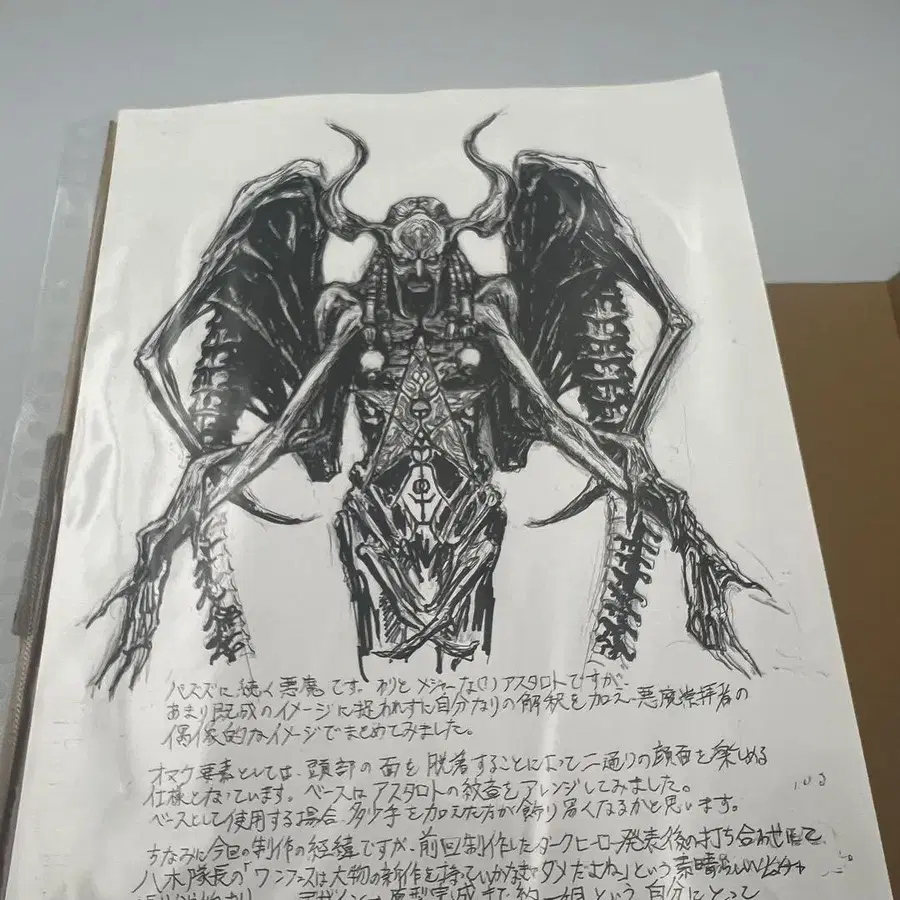 パズズに続く悪魔です。わりとメジャーな(?)アスタロトですが、
あまり既成のイメージに捉われずに自分なりの解釈を加え、悪魔崇拝者の
偶像的なイメージでまとめてみました。
オマケ要素としては、頭部の面を脱着することによって二通りの顔面を楽しめる
仕様となっています。ベースはアスタロトの紋章をアレンジしてみました。
ベースとして使用する場合、多少手を加えた方が飾り易くなるかと思います。
ちなみに今回の制作の経緯ですが、前回制作したダークヒーロー発表後の打ち合わせにて
八木隊長の「ワンフェスは大物の新作を持っていかなきゃダメだよね」という素晴らしい
デザイン→原型完成まで約一ヶ月という自分にとって